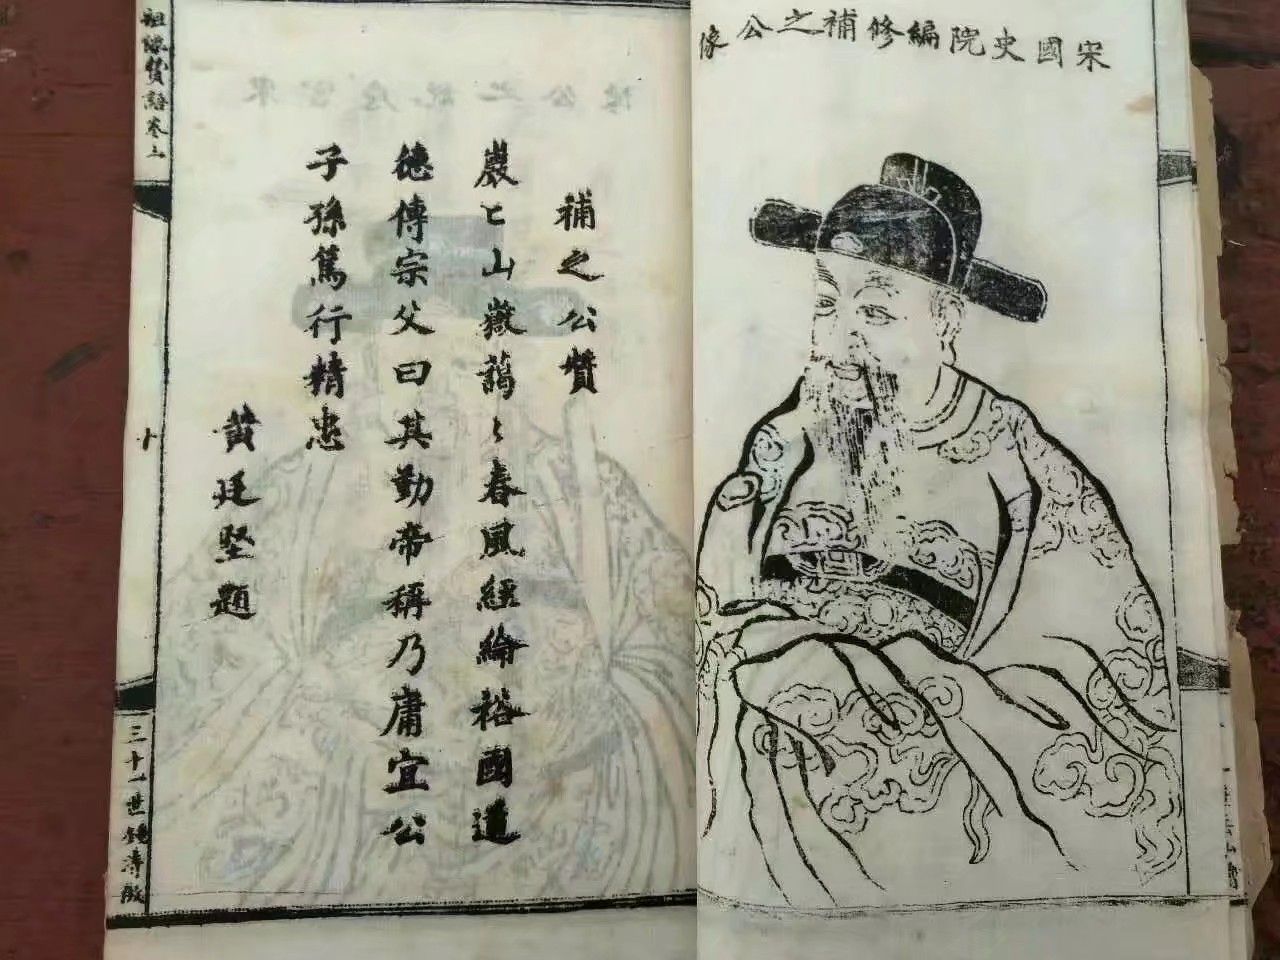 宋國史院編修補之公像
補之公贊
巖〻山嶽藹〻春風經綸裕國道
德傳宗父曰其勤帝稱乃庸宜公
子孫篤行精忠
黄廷坚題
祖像贊語卷二
三十一世